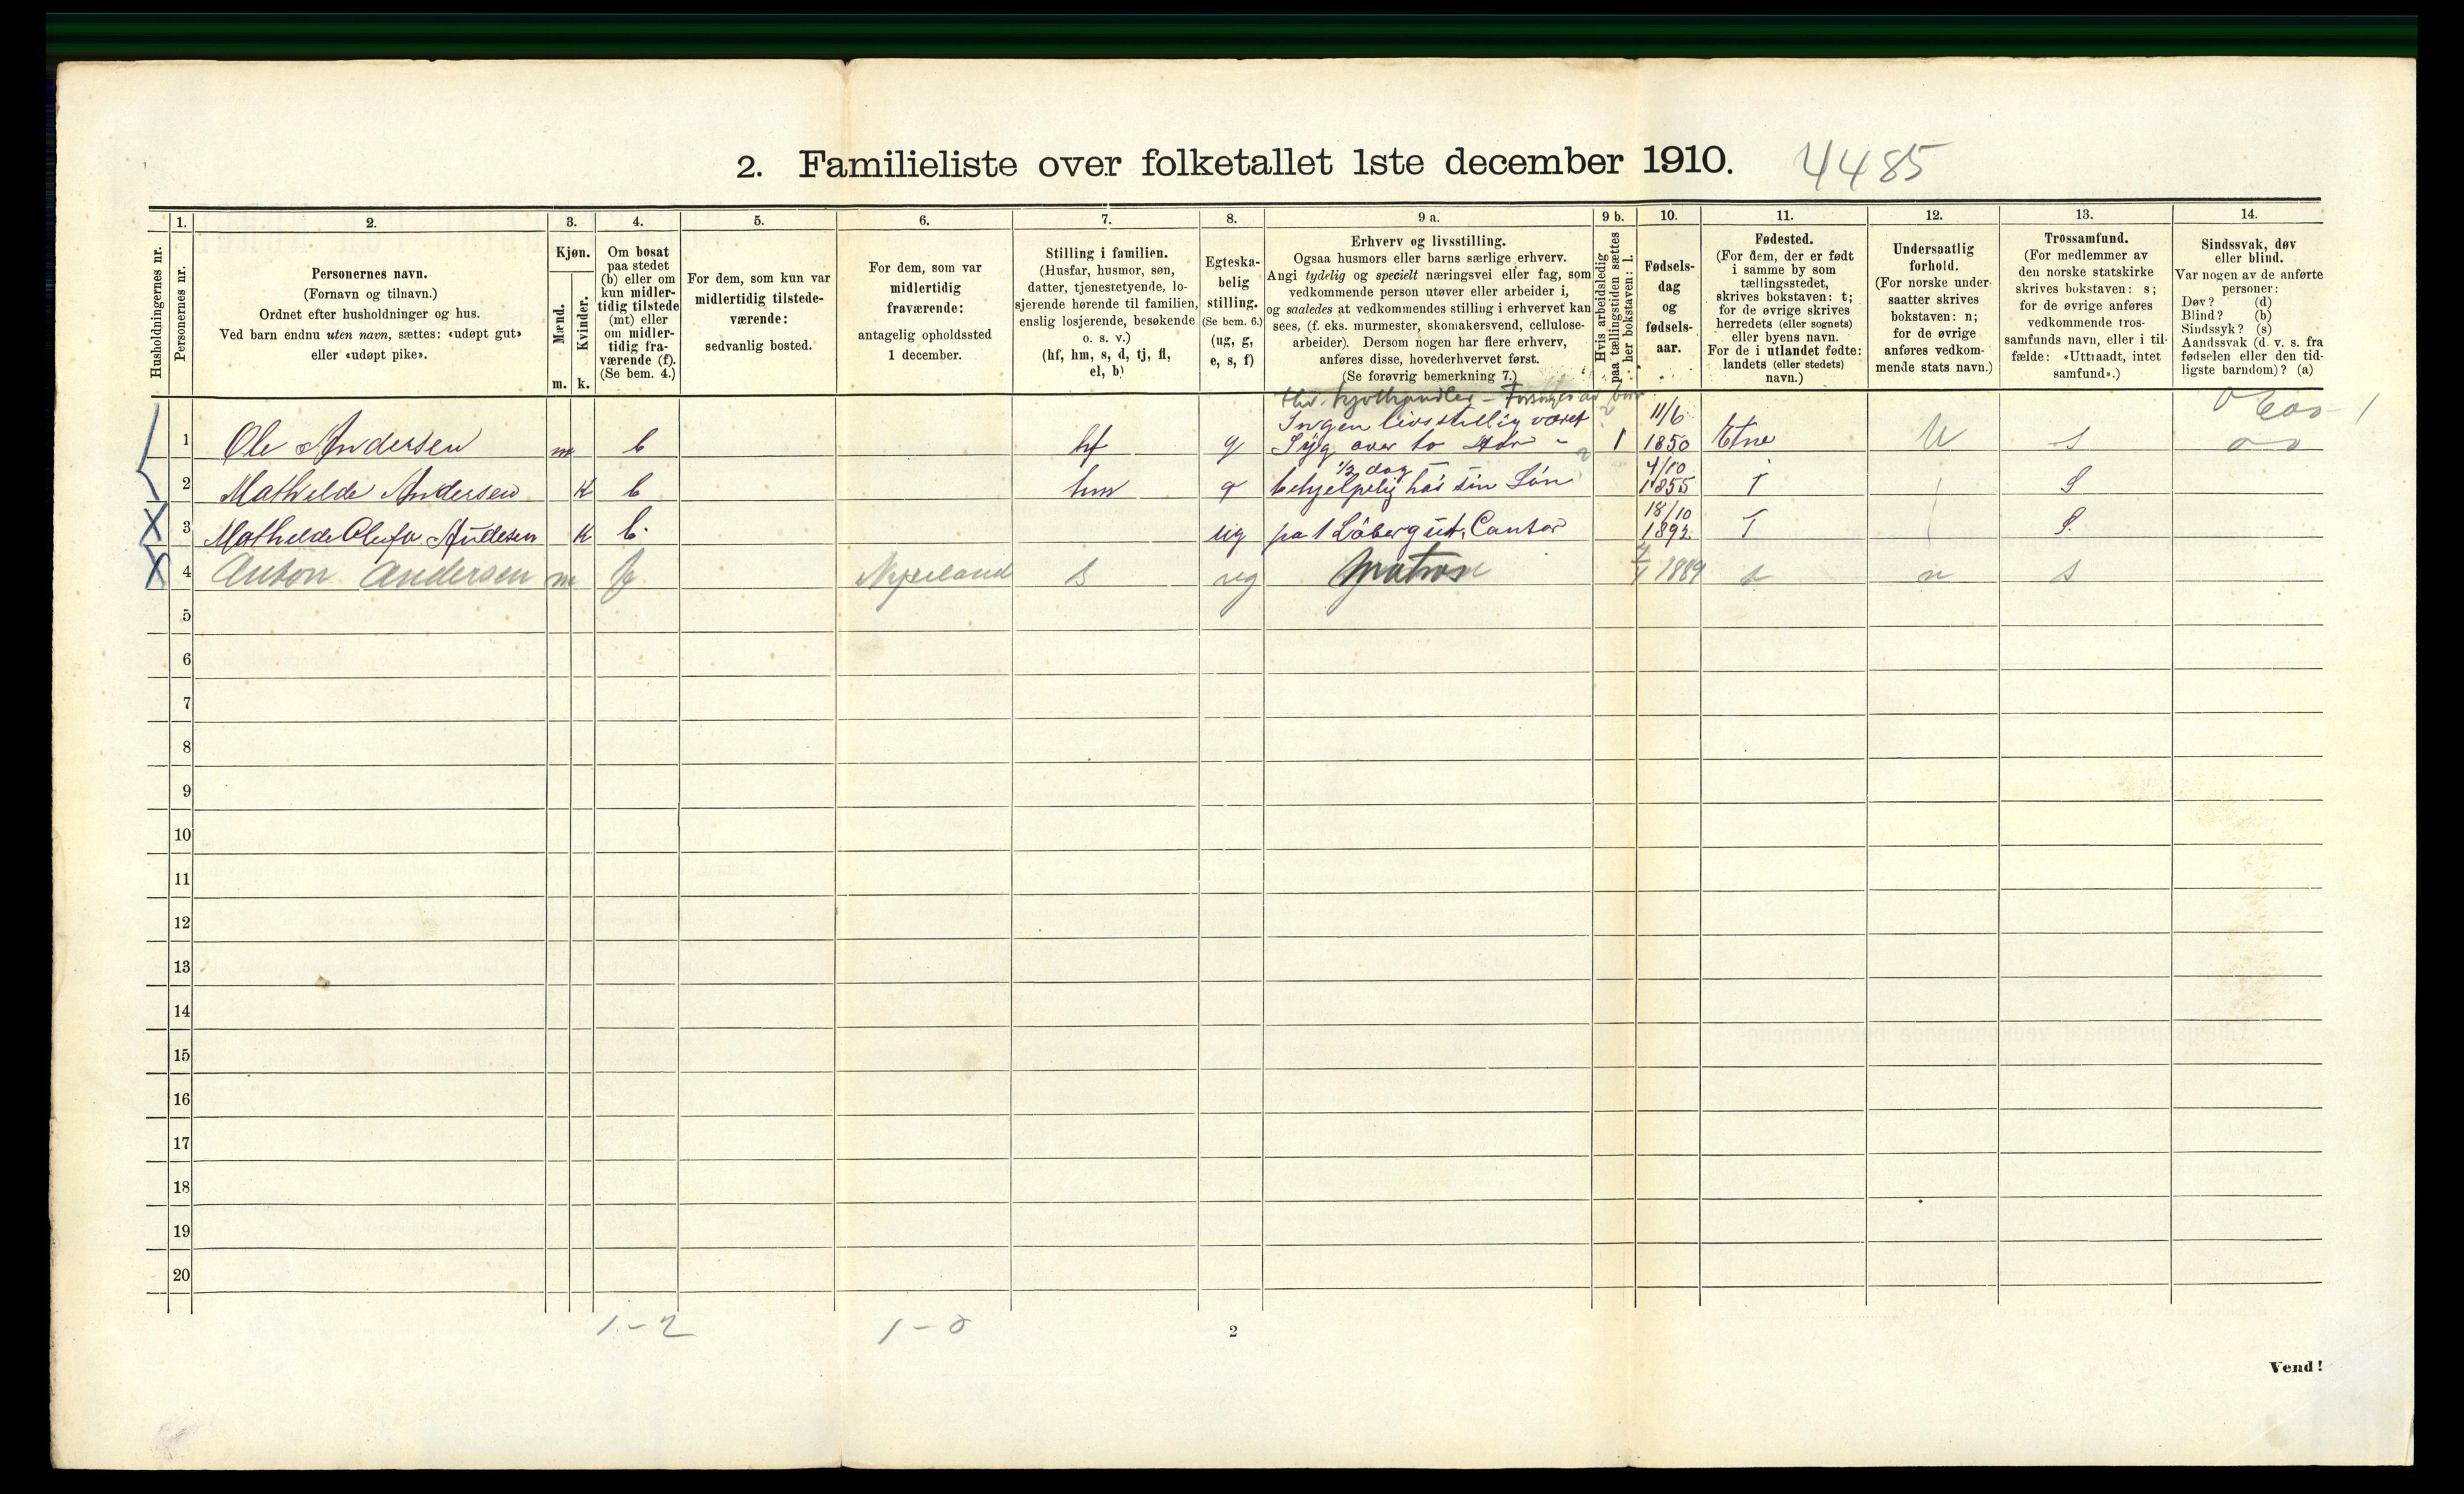 2. Familieliste over folketallet 1ste december 1910. 4485
Husholdningernes nr.
1.
Personernes nr.
2.
Personernes navn.
(Fornavn og tilnavn.)
Ordnet efter husholdninger og hus.
Ved barn endnu uten navn, sættes: «udøpt gut»
eller «udøpt pike».
3.
Kjøn.
Mænd.
Kvinder.
m. k.
4.
Om bosat
paa stedet
(b) eller om
kun midler-
tidig tilstede
(mt) eller
om midler-
tidig fra-
værende (f).
(Se bem. 4.)
5.
For dem, som kun var
midlertidig tilstede-
værende:
sedvanlig bosted.
6.
For dem, som var
midlertidig
fraværende:
antagelig opholdssted
1 december.
7.
Stilling i familien.
(Husfar, husmor, søn,
datter, tjenestetyende, lo-
sjerende hørende til familien,
enslig losjerende, besøkende
o. s. v.)
(hf, hm, s, d, tj, fl,
el, b)
8.
Egteska-
belig
stilling.
(Se bem. 6.)
(ug, g,
e, s, f)
9 a.
Erhverv og livsstilling.
Ogsaa husmors eller barns særlige erhverv.
Angi tydelig og specielt næringsvei eller fag, som
vedkommende person utøver eller arbeider i,
og saaledes at vedkommendes stilling i erhvervet kan
sees, (f. eks. murmester, skomakersvend, cellulose-
arbeider). Dersom nogen har flere erhverv,
anføres disse, hovederhvervet først.
(Se forøvrig bemerkning 7.)
9 b.
Hvis arbeidsledig
paa tællingstiden sættes
her bokstaven: l.
10.
Fødsels-
dag
og
fødsels-
aar.
11.
Fødested.
(For dem, der er født
i samme by som
tællingsstedet,
skrives bokstaven: t;
for de øvrige skrives
herredets (eller sognets)
eller byens navn.
For de i utlandet fødte:
landets (eller stedets)
navn.)
12.
Undersaatlig
forhold.
(For norske under-
saatter skrives
bokstaven: n;
for de øvrige
anføres vedkom-
mende stats navn.)
13.
Trossamfund.
(For medlemmer av
den norske statskirke
skrives bokstaven: s;
for de øvrige anføres
vedkommende tros-
samfunds navn, eller i til-
fælde: «Uttraadt, intet
samfund».)
14.
Sindssvak, døv
eller blind.
Var nogen av de anførte
personer:
Døv? (d)
Blind? (b)
Sindssyk? (s)
Aandssvak (d. v. s. fra
fødselen eller den tid-
ligste barndom)? (a)
Kjøthandler - Forsørges av barn
Ingen livsstellig været
1 Ole Andersen m b hf g Syg over to Aar 1 11/6 1850 Etne N s
1/2 dag
2 Mathilde Andersen k b hm g behjelpelig hos sin Sön 4/10 1855 T S
3 Mathilde Olufa Andesen k b. ug pa 1 Löbergut. Cantor 18/10 1892. T S.
4 Anton Andersen m f s ug Matros 1889 n s
5
6
7
8
9
10
11
12
13
14
15
16
17
18
19
20
1-2 1-0 2
Vend!